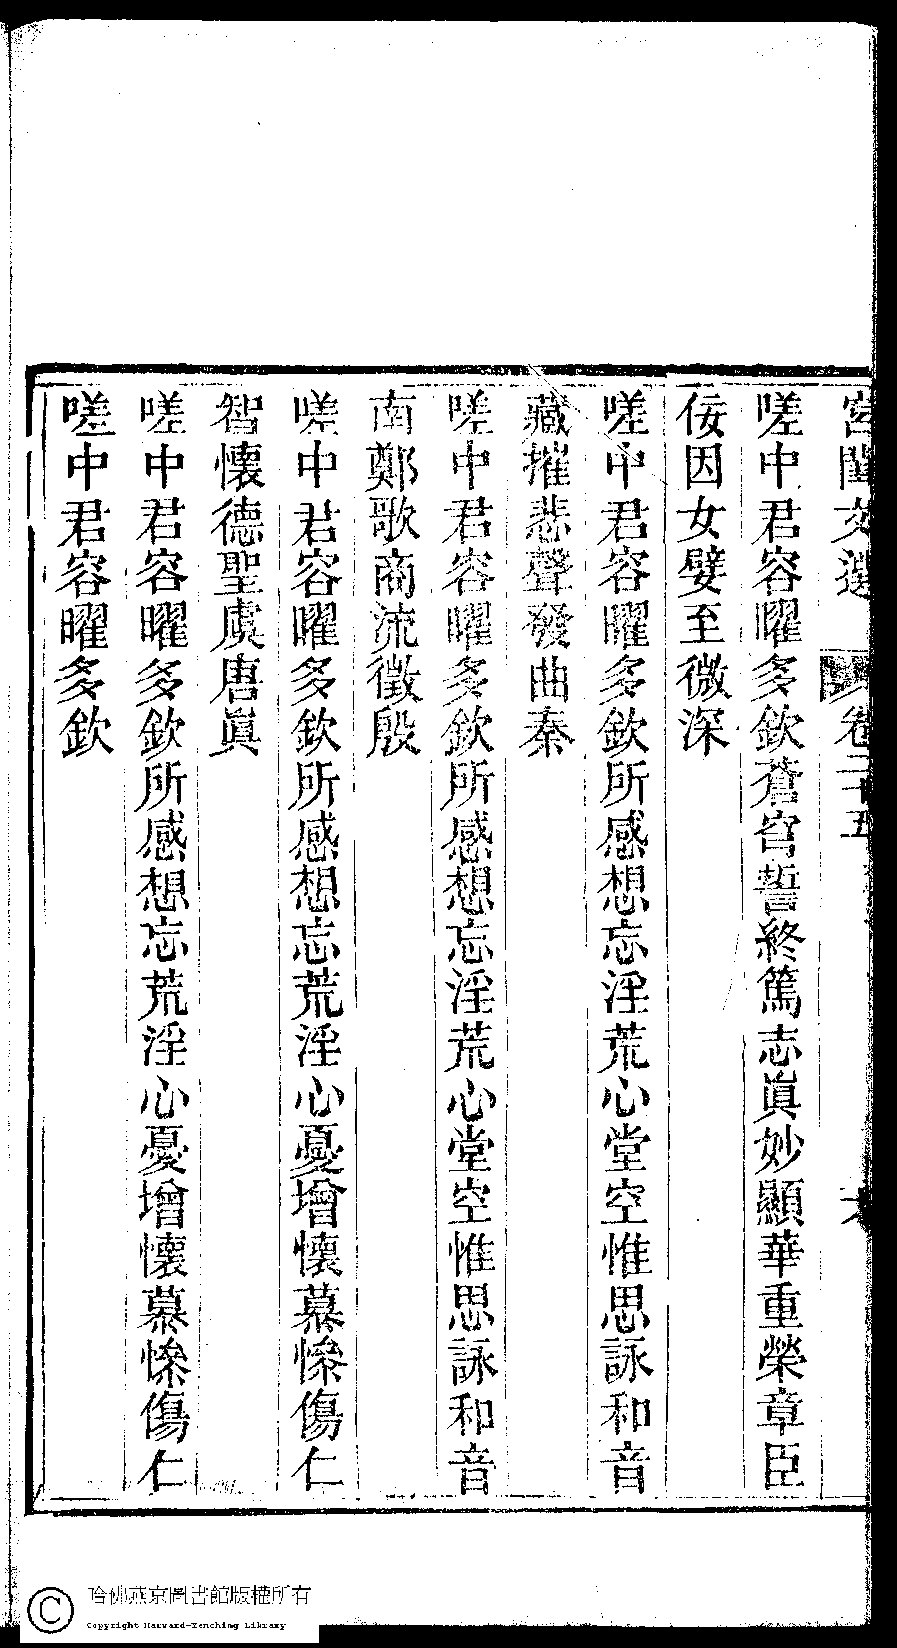 宮閨文選 卷二十五 六
嗟中君容曜多欽蒼穹誓終篤志眞妙顯華重榮章臣
佞因女嬖至微深
嗟中君容曜多欽所感想忘淫荒心堂空惟思詠和音
藏摧悲聲發曲秦
嗟中君容曜多欽所感想忘淫荒心堂空惟思詠和音
南鄭歌商流徵殷
嗟中君容曜多欽所感想忘荒淫心憂增懷慕慘傷仁
智懷德聖虞唐眞
嗟中君容曜多欽所感想忘荒淫心憂增懷慕慘傷仁
嗟中君容曜多欽
哈佛燕京圖書館版權所有
Copyright Harvard-Yenching Library